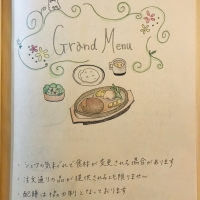 Grand Menu
・シェフの気まぐれで食材が変更される場合があります
・注文通りの品が提供されるとも限りません
・配膳は 制となっております